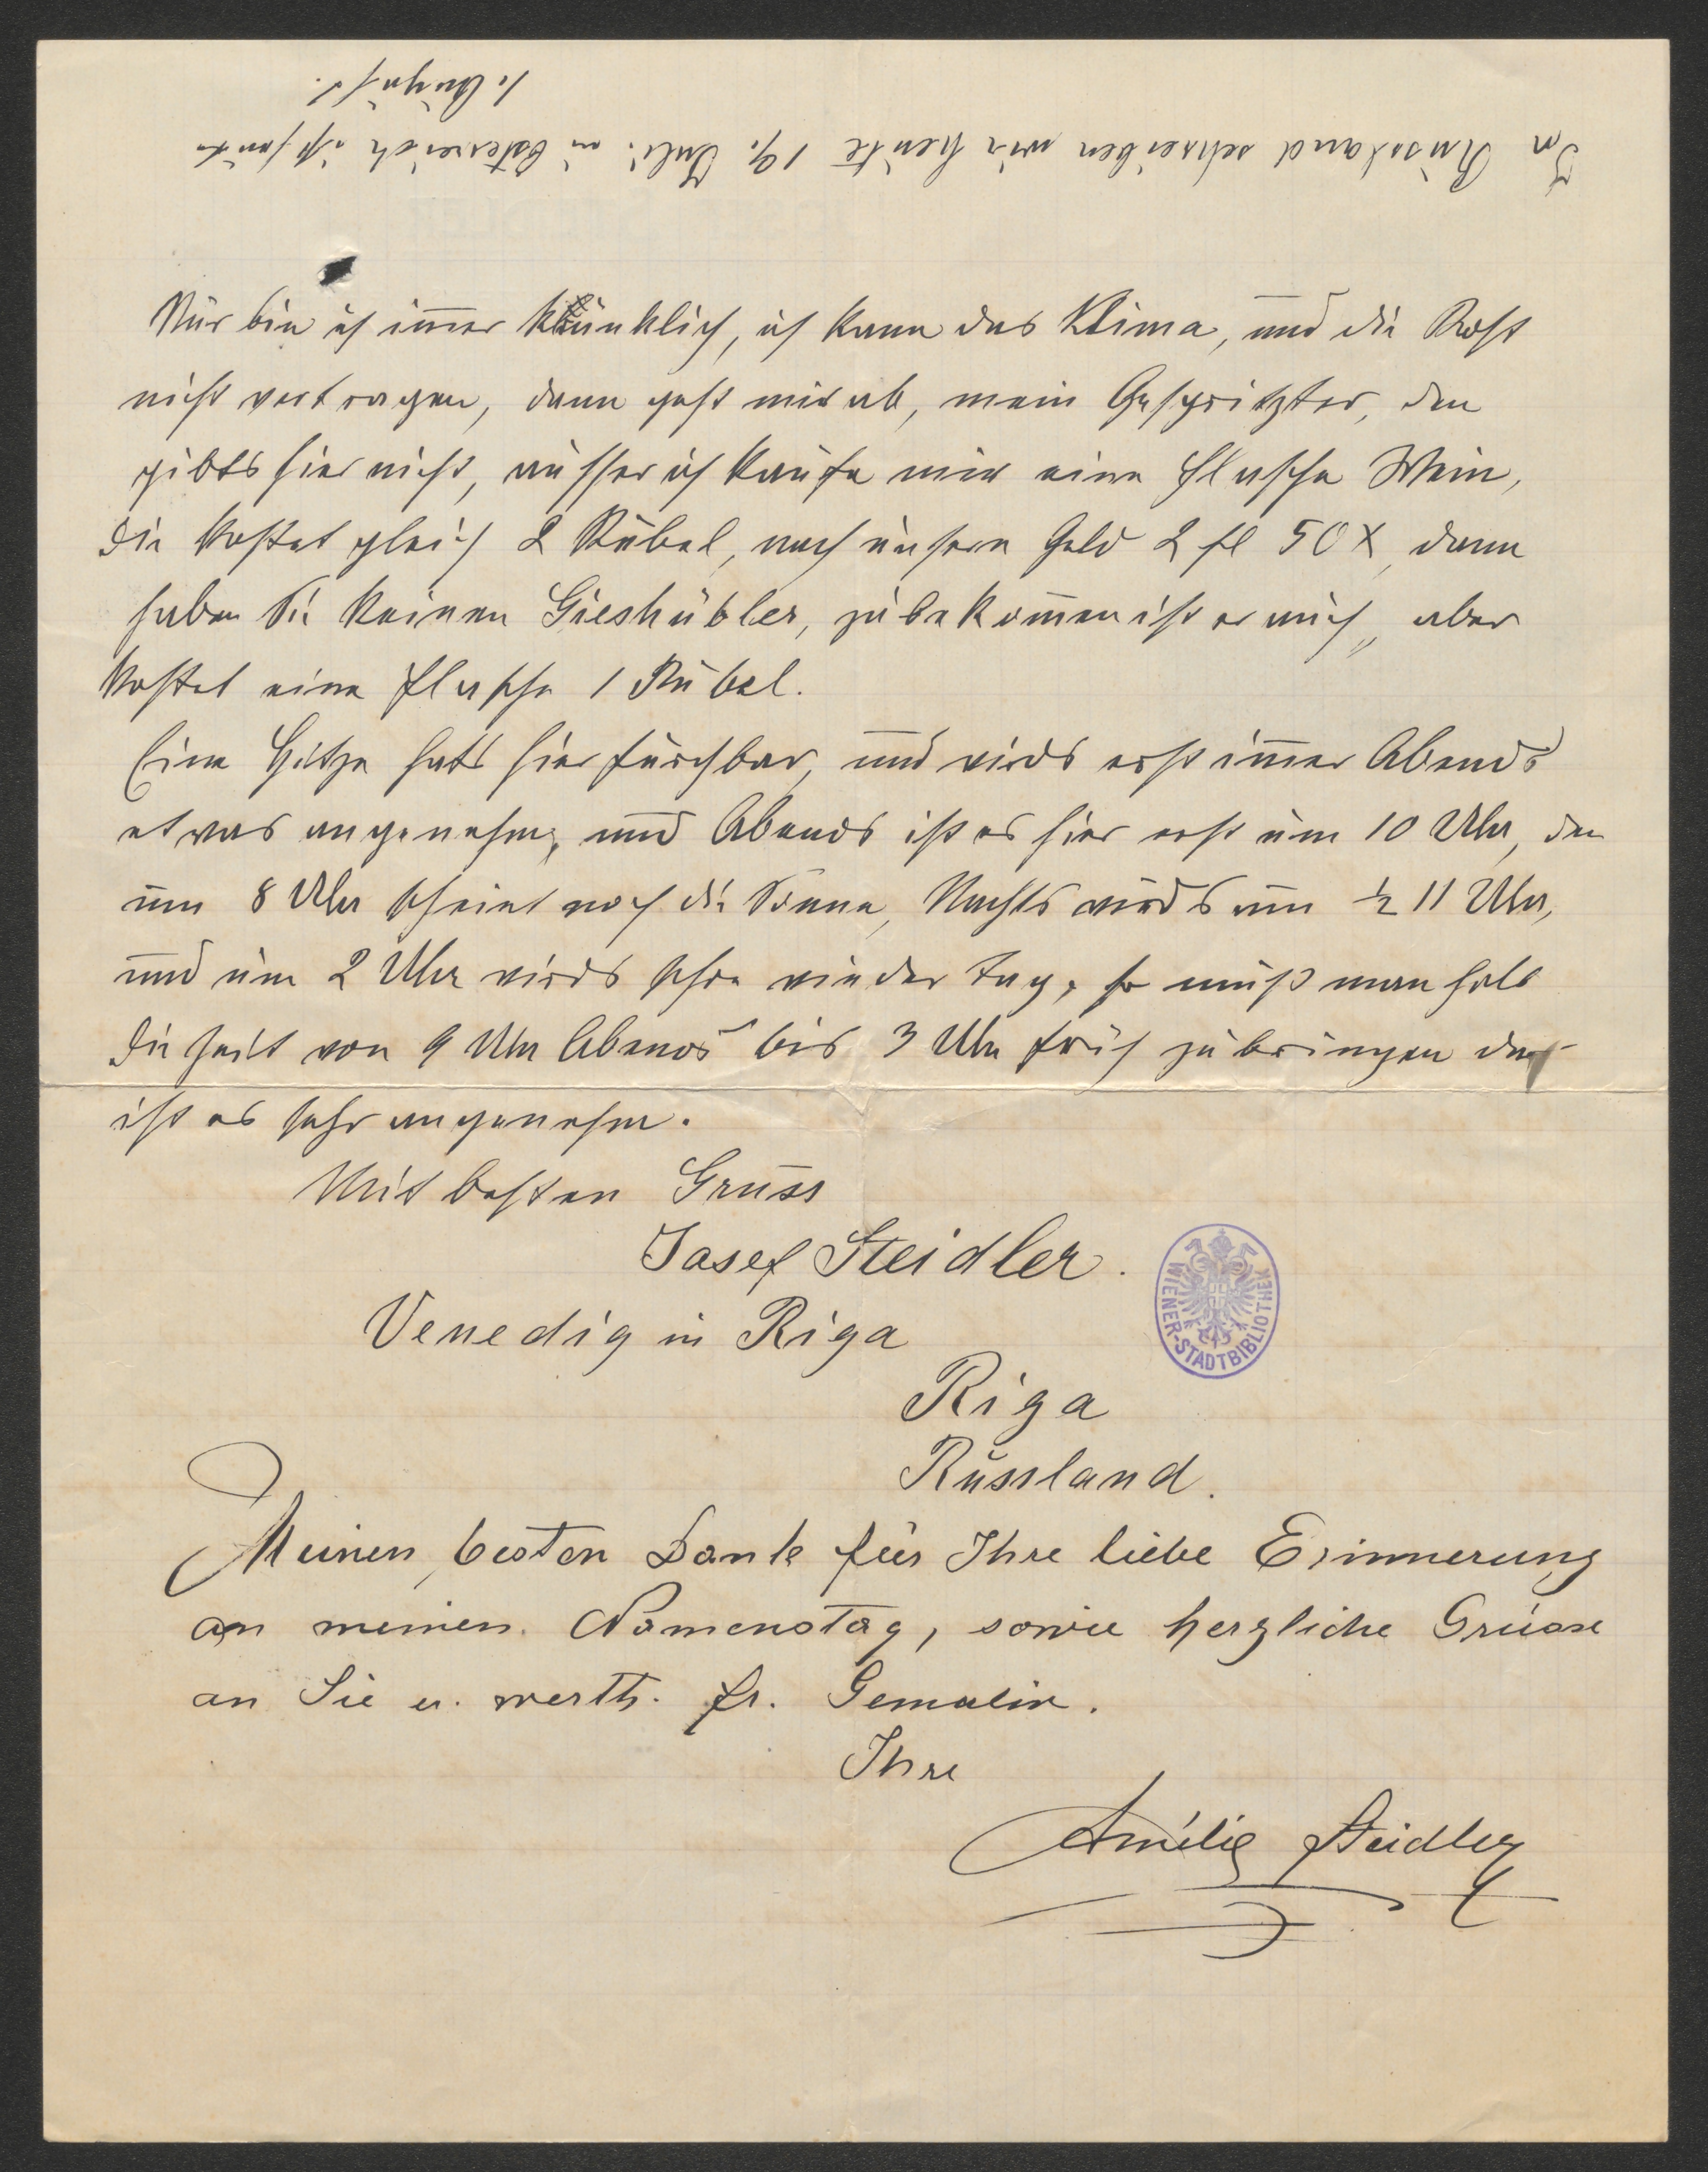 In Russland schreiben wir heute 19. Juli. in Österreich ist heute
1. August.
Nur bin ich immer kränklich, ich kann das Klima, und die Kost
nicht vertragen, dann geht mir ab, mein Gespritzter, den
gibts hier nicht, ausser ich kaufe mir eine Flasche Wein,
die kostet gleich 2 Rubel, nach unsern Geld 2 fl 50 x, dann
haben Sie keinen Gieshübler, zu bekommen ist er auch, aber
kostet eine Flasche 1 Rubel.
Eine Hitze hats hier furchbar, und wirds erst immer Abends
etwas angenehm, und Abends ist es hier erst um 10 Uhr, den
um 8 Uhr scheint noch die Sonne, Nachts wirds um ½ 11 Uhr,
und um 2 Uhr wirds schon wieder Tag, so muß man halt
die Zeit von 9 Uhr Abends bis 3 Uhr früh zubringen da
ist es sehr angenehm.
Mit besten Gruss
Josef Steidler.
Venedig in Riga
Riga
Russland.
WIENER-STADTBIBLIOTHEK
Meinen besten Dank für Ihre liebe Erinnerung
an meinen Namenstag, sowie herzliche Grüsse
an Sie u. werth. Fr. Gemalin.
Ihre
Amélie Steidler